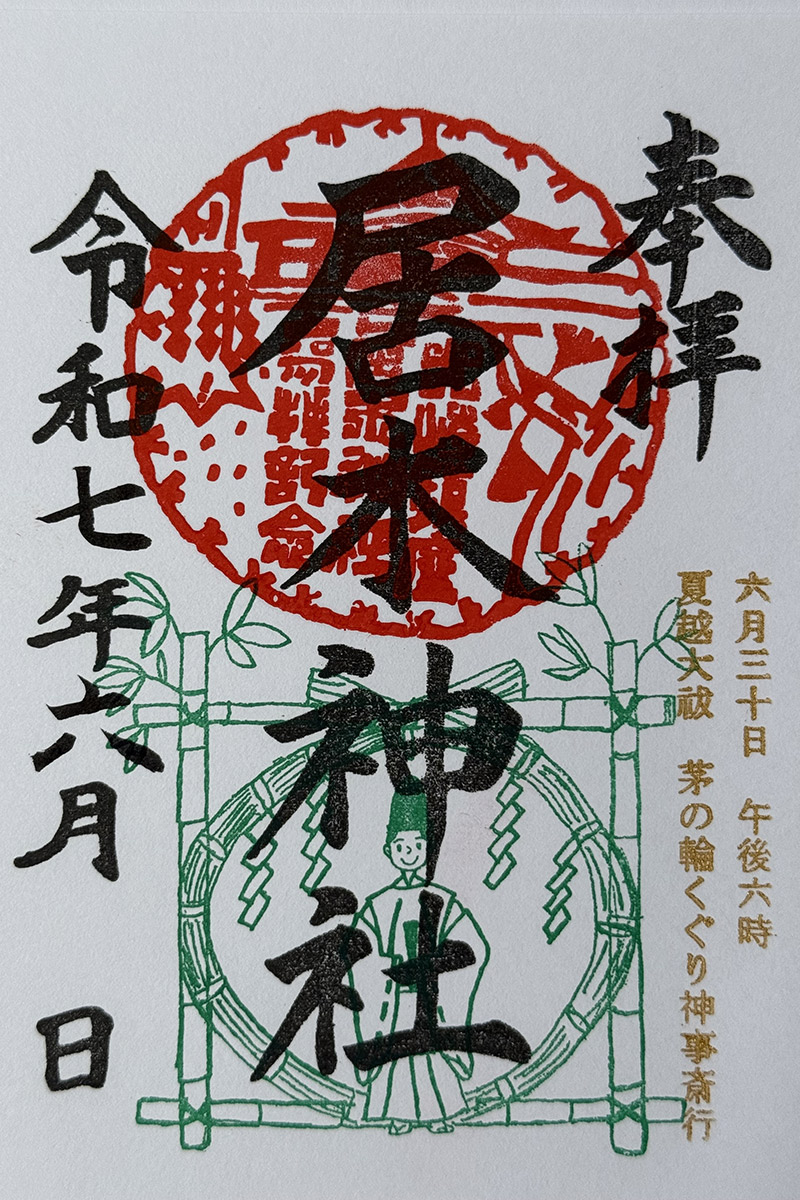 奉拝
六月三十日　午後六時
夏越大祓　茅の輪くぐり神事斎行
居木神社
令和七年六月　日